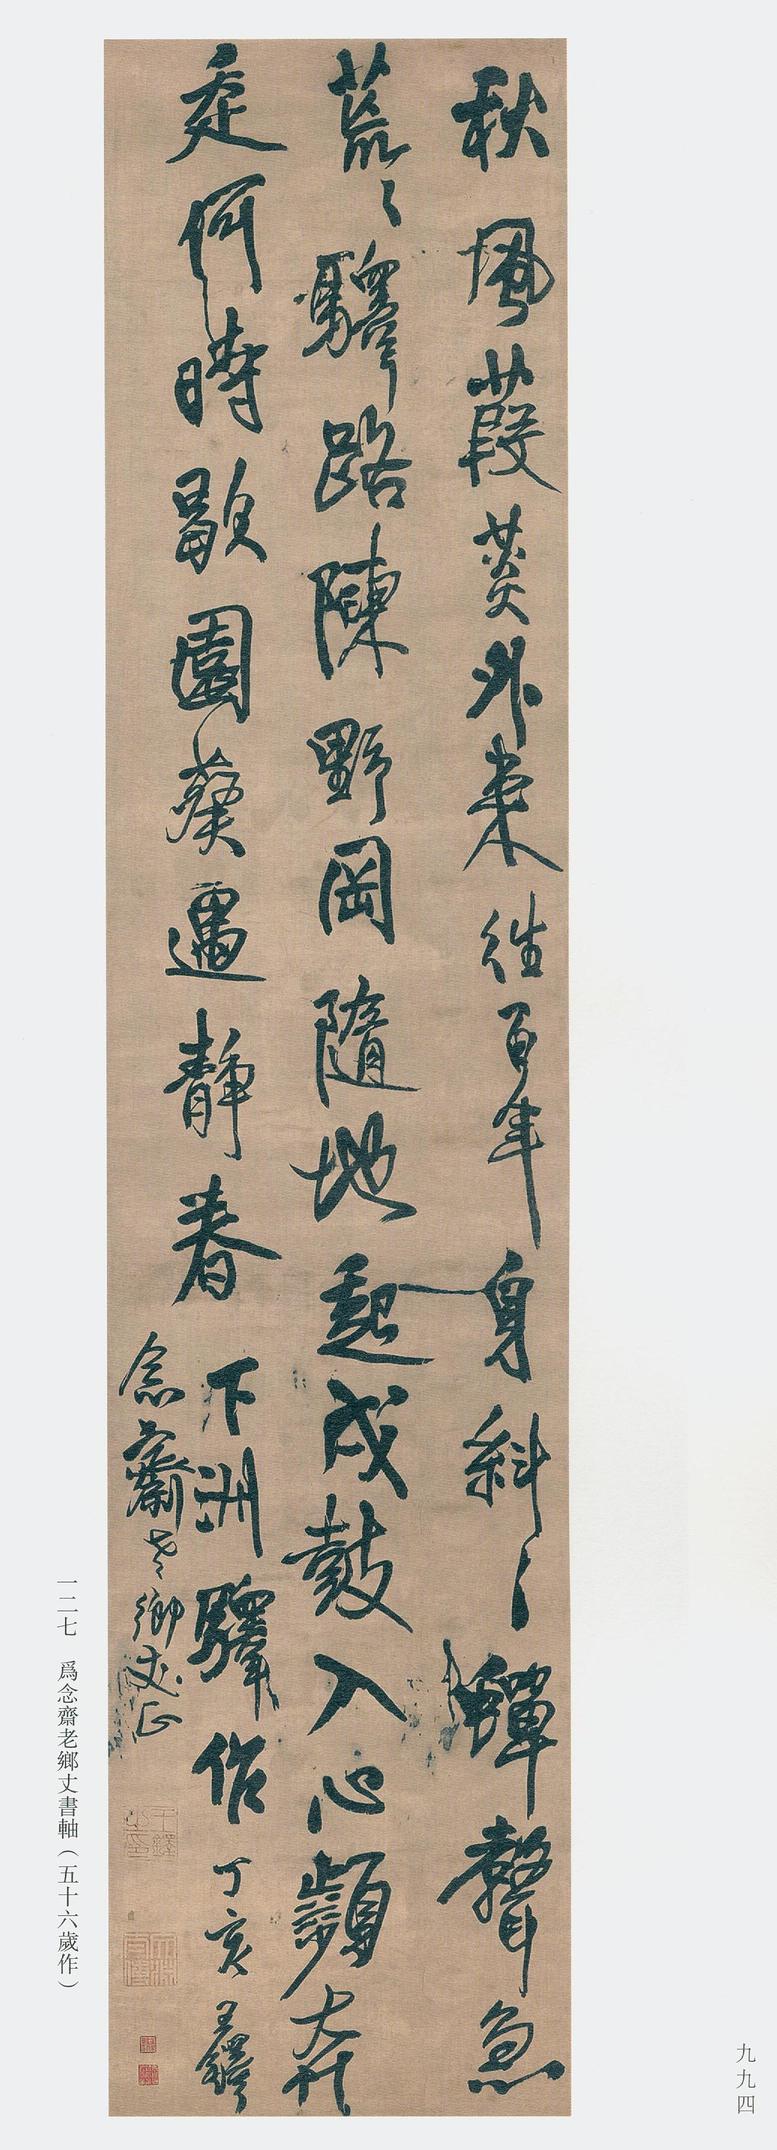 秋風葭菼外來往百年身斜〻蟬聲急
荒〻驛路陳野岡隨地起戍鼓入心頻奔
走何時歇園葵靜春
下洲驛作 丁亥 王鐸
念齋老鄉丈正
王鐸之印
一二七 爲念齋老鄉丈書軸（五十六歲作）
九九四